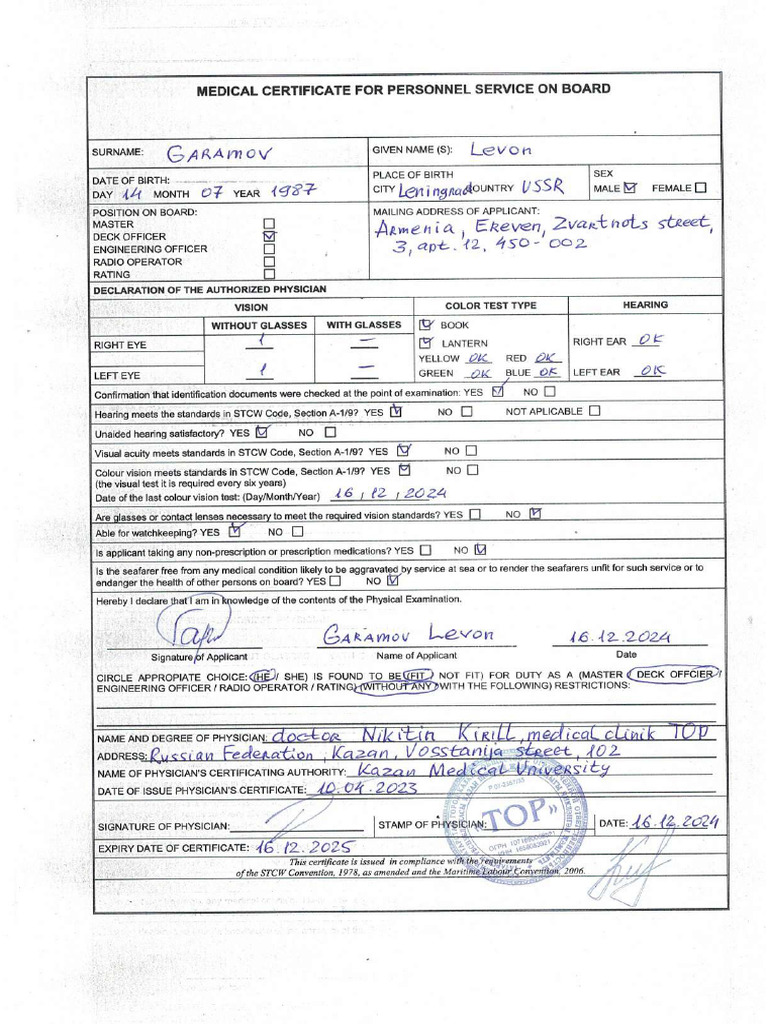 MEDICAL CERTIFICATE FOR PERSONNEL SERVICE ON BOARD
SURNAME: GARAMOV GIVEN NAME (S): Levon
DATE OF BIRTH: PLACE OF BIRTH SEX
DAY 14 MONTH 07 YEAR 1987 CITY Leningrad COUNTRY USSR MALE ☑ FEMALE ☐
POSITION ON BOARD: MAILING ADDRESS OF APPLICANT:
MASTER ☐ Armenia, Ereven, Zvartnots street,
DECK OFFICER ☑ 3, apt. 12, 450-002
ENGINEERING OFFICER ☐
RADIO OPERATOR ☐
RATING ☐
DECLARATION OF THE AUTHORIZED PHYSICIAN
VISION COLOR TEST TYPE HEARING
WITHOUT GLASSES WITH GLASSES ☑ BOOK
RIGHT EYE 1 – ☑ LANTERN RIGHT EAR OK
YELLOW OK RED OK
LEFT EYE 1 – GREEN OK BLUE OK LEFT EAR OK
Confirmation that identification documents were checked at the point of examination: YES ☑ NO ☐
Hearing meets the standards in STCW Code, Section A-1/9? YES ☑ NO ☐ NOT APLICABLE ☐
Unaided hearing satisfactory? YES ☑ NO ☐
Visual acuity meets standards in STCW Code, Section A-1/9? YES ☑ NO ☐
Colour vision meets standards in STCW Code, Section A-1/9? YES ☑ NO ☐
(the visual test it is required every six years)
Date of the last colour vision test: (Day/Month/Year) 16, 12, 2024
Are glasses or contact lenses necessary to meet the required vision standards? YES ☐ NO ☑
Able for watchkeeping? YES ☑ NO ☐
Is applicant taking any non-prescription or prescription medications? YES ☐ NO ☑
Is the seafarer free from any medical condition likely to be aggravated by service at sea or to render the seafarers unfit for such service or to
endanger the health of other persons on board? YES ☐ NO ☑
Hereby I declare that I am in knowledge of the contents of the Physical Examination.
GARAMOV Levon 16.12.2024
Signature of Applicant Name of Applicant Date
CIRCLE APPROPIATE CHOICE: (HE / SHE) IS FOUND TO BE (FIT / NOT FIT) FOR DUTY AS A (MASTER / DECK OFFCIER /
ENGINEERING OFFICER / RADIO OPERATOR / RATING) (WITHOUT ANY / WITH THE FOLLOWING) RESTRICTIONS:
NAME AND DEGREE OF PHYSICIAN: doctor Nikitin Kirill, medical clinik TOP
ADDRESS: Russian Federation, Kazan, Vosstanija street, 102
NAME OF PHYSICIAN'S CERTIFICATING AUTHORITY: Kazan Medical University
DATE OF ISSUE PHYSICIAN'S CERTIFICATE: 10.04.2023
«TOP»
SIGNATURE OF PHYSICIAN: STAMP OF PHYSICIAN: DATE: 16.12.2024
EXPIRY DATE OF CERTIFICATE: 16.12.2025
This certificate is issued in compliance with the requirements
of the STCW Convention, 1978, as amended and the Maritime Labour Convention, 2006.